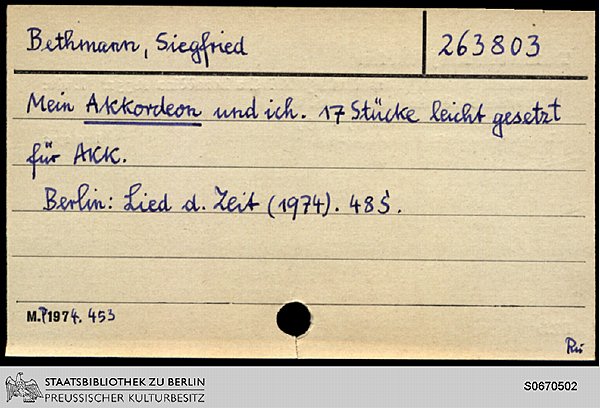 Bethmann, Siegfried
263803
Mein Akkordeon und ich. 17 Stücke leicht gesetzt
für Akk.
Berlin: Lied d. Zeit (1974). 48 S.
M. P 1974. 453
Rü
STAATSBIBLIOTHEK ZU BERLIN
PREUSSISCHER KULTURBESITZ
S0670502